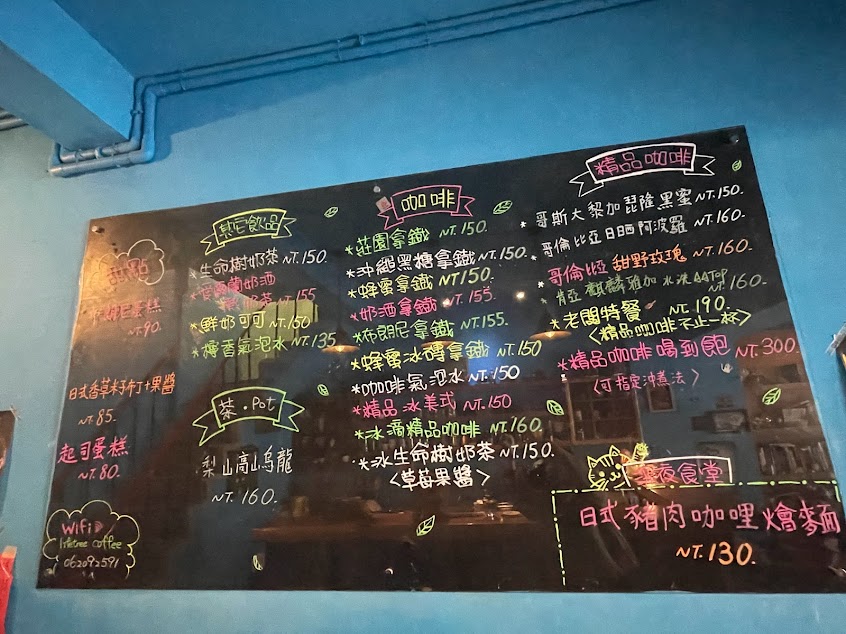 甜點
蛋糕
NT.90.
日式香草米布丁+果醬
NT.85.
起司蛋糕
NT.80.
Wifi
lifetree coffee
062092591
其它飲品
*生命樹奶茶 NT.150.
*愛爾蘭奶酒
奶茶 NT.155
*鮮奶可可 NT.150
*檸香氣泡水 NT.135
茶・Pot
梨山高山烏龍
NT.160.
咖啡
*莊園拿鐵 NT.150.
*沖繩黑糖拿鐵 NT.150.
*蜂蜜拿鐵 NT150.
*奶酒拿鐵 NT.155
*布朗尼拿鐵 NT.155.
*蜂蜜冰磚拿鐵 NT.150
*咖啡氣泡水 NT.150
*精品冰美式 NT.150
*冰滴精品咖啡 NT.160.
*冰生命樹奶茶 NT.150.
<草莓果醬>
精品咖啡
*哥斯大黎加琵隆黑蜜 NT.150.
*哥倫比亞日晒阿波羅 NT.160.
*哥倫比亞 甜野玫瑰 NT.160.
*肯亞 麒麟雅加 水洗AATOP NT.160.
*老闆特餐 NT.190.
<精品咖啡不止一杯>
*精品咖啡喝到飽 NT.300.
<可指定沖煮法>
深夜食堂
日式豬肉咖哩燴麵
NT.130.